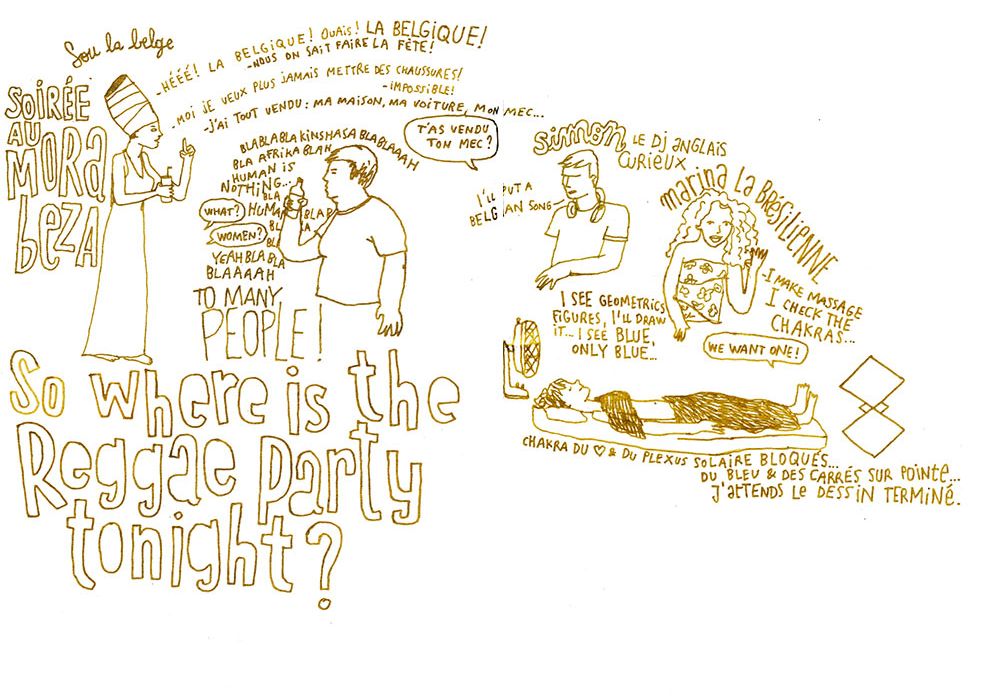 Sou la belge
SOIRÉE
AU
MORA
beZA
-HÉÉÉ! LA BELGIQUE! OUAIS! LA BELGIQUE!
-NOUS ON SAIT FAIRE LA FÊTE!
-MOI JE VEUX PLUS JAMAIS METTRE DES CHAUSSURES!
-IMPOSSIBLE!
-J'AI TOUT VENDU: MA MAISON, MA VOITURE, MON MEC...
T'AS VENDU
TON MEC?
BLABLABLA KINSHASA BLABLAAAH
BLA AFRIKA BLAH
HUMAN IS
NOTHING...
BLA
WHAT?
WOMEN?
YEAH BLA BLA
BLAAAAH
TO MANY
PEOPLE!
So where is the
Reggae party
tonight?
SIMON LE DJ ANGLAIS
CURIEUX
I'LL PUT A
BELGIAN SONG
I SEE GEOMETRICS
FIGURES, I'LL DRAW
IT... I SEE BLUE,
ONLY BLUE...
MARINA LA BRESILIENNE
-I MAKE MASSAGE
I CHECK THE
CHAKRAS...
WE WANT ONE!
CHAKRA DU ♡ & DU PLEXUS SOLAIRE BLOQUÉS...
DU BLEU & DES CARRÉS SUR POINTE...
J'ATTENDS LE DESSIN TERMINÉ.